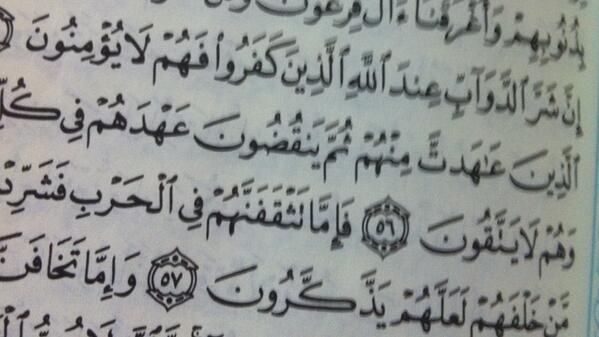 بِذُنُوبِهِمْ وَأَغْرَقْنَا ءَالَ فِرْعَوْنَ
إِنَّ شَرَّ ٱلدَّوَآبِّ عِندَ ٱللَّهِ ٱلَّذِينَ كَفَرُوا۟ فَهُمْ لَا يُؤْمِنُونَ
ٱلَّذِينَ عَٰهَدتَّ مِنْهُمْ ثُمَّ يَنقُضُونَ عَهْدَهُمْ فِى كُلِّ
وَهُمْ لَا يَتَّقُونَ ٥٦ فَإِمَّا تَثْقَفَنَّهُمْ فِى ٱلْحَرْبِ فَشَرِّدْ
مَّنْ خَلْفَهُمْ لَعَلَّهُمْ يَذَّكَّرُونَ ٥٧ وَإِمَّا تَخَافَنَّ